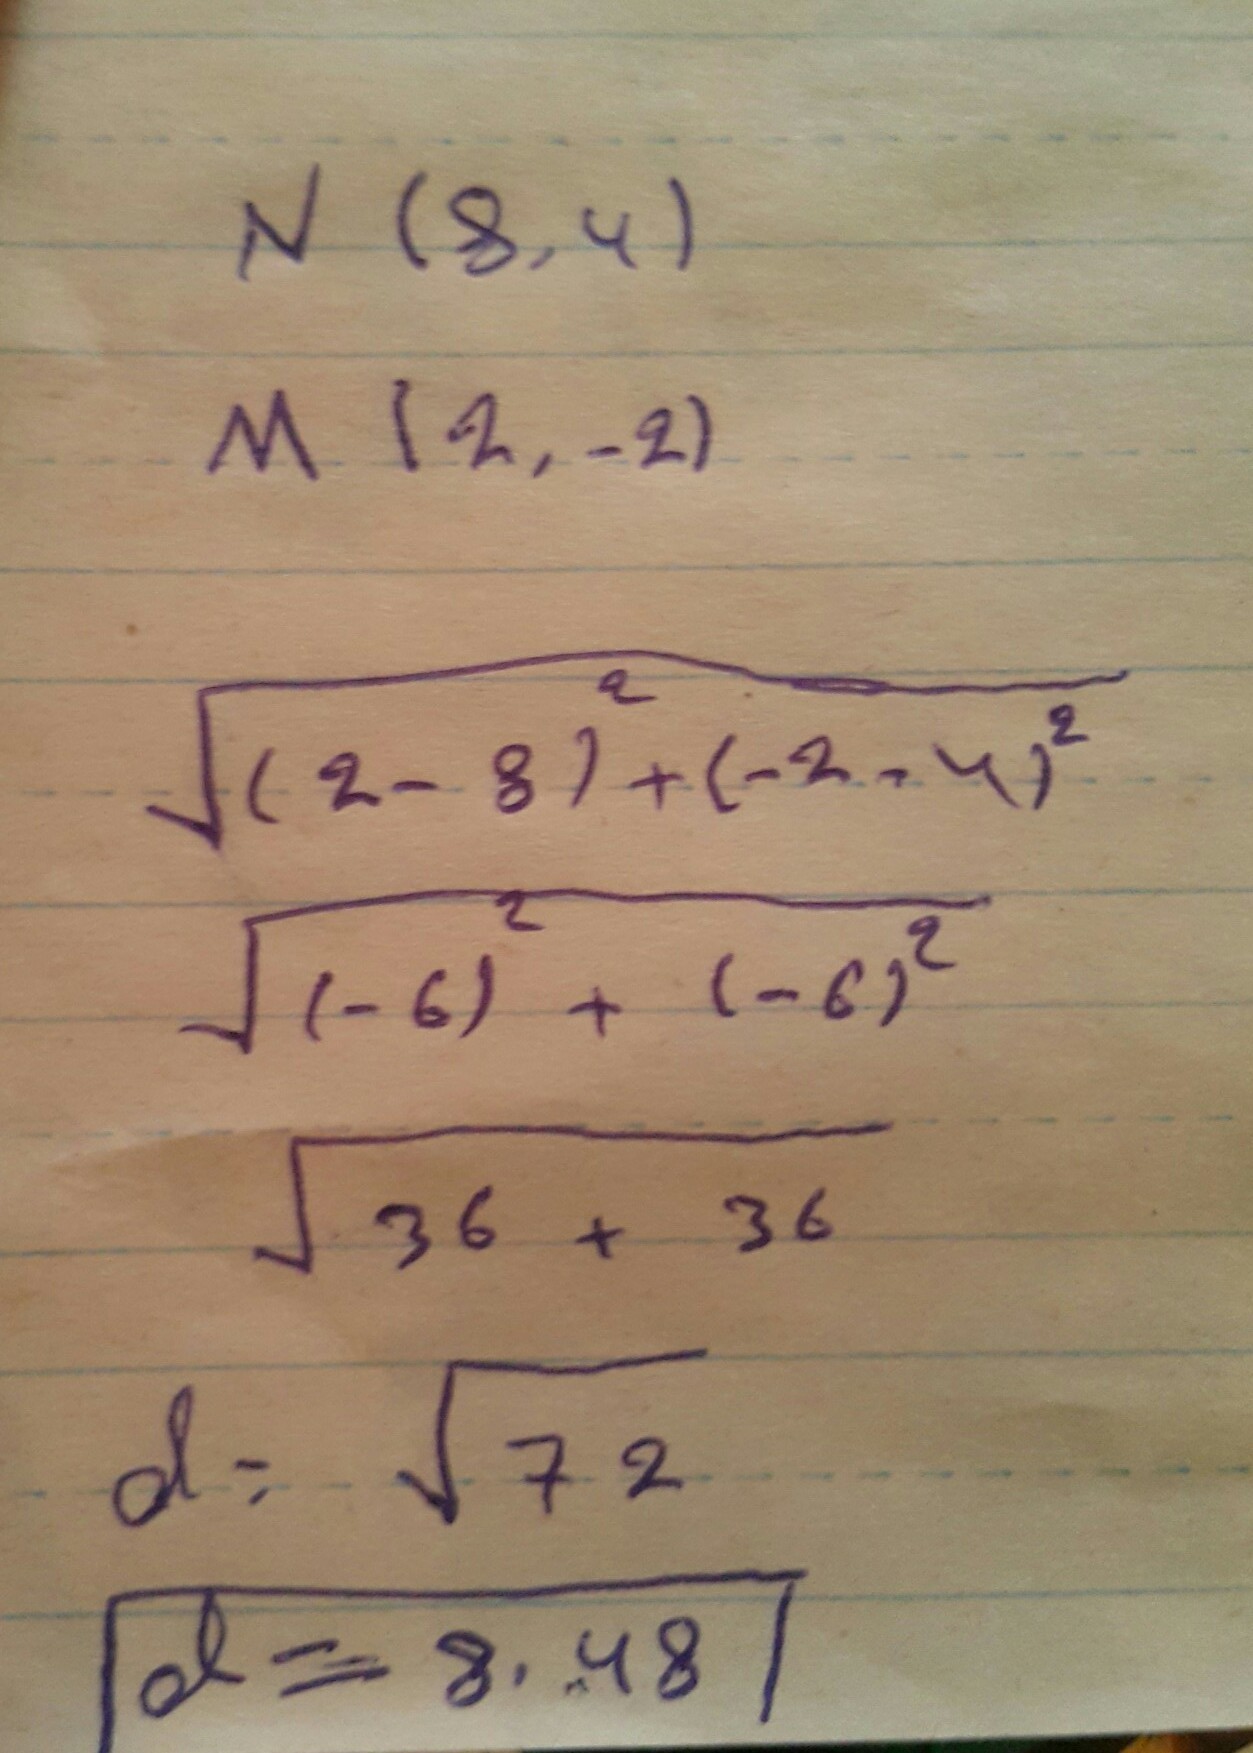 N (8,4)
M (2,-2)
√((2-8)² + (-2-4)²)
√((-6)² + (-6)²)
√(36 + 36)
d = √72
d = 8.48